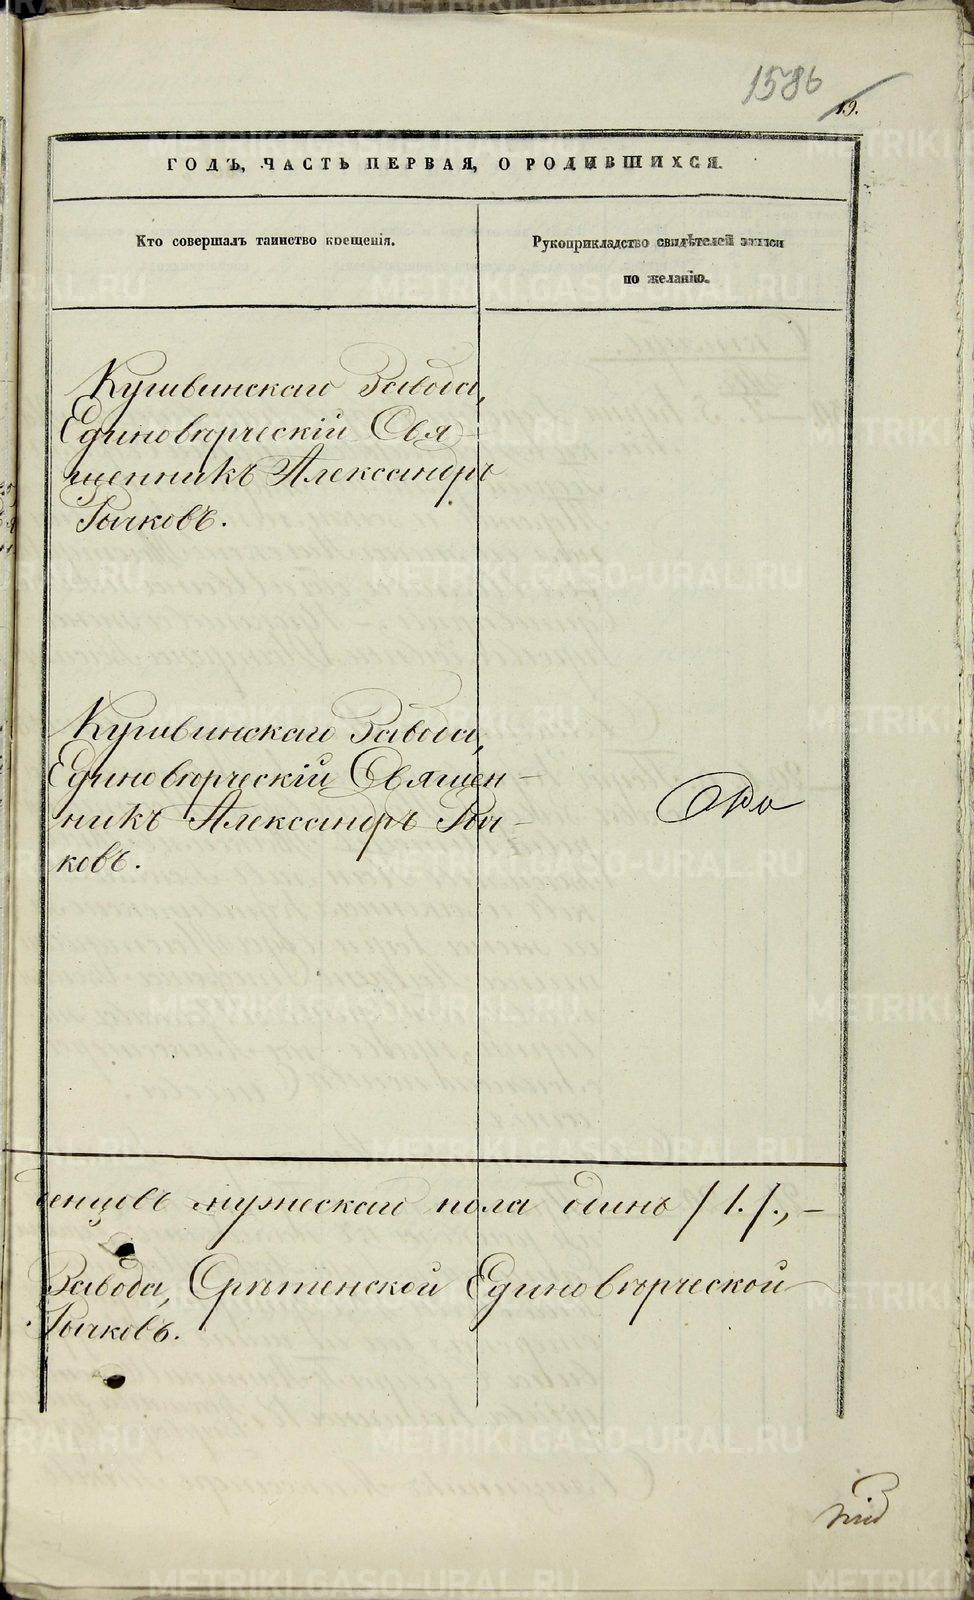 1586
19.
ГОДЪ, ЧАСТЬ ПЕРВАЯ, О РОДИВШИХСЯ.
Кто совершалъ таинство крещенія.
Рукоприкладство свидѣтелей записи
по желанію.
Кушвинскаго Завода,
Единовѣрческій Свя-
щенникъ Александръ
Рычковъ.
Кушвинскаго Завода,
Единовѣрческій Священ-
никъ Александръ Рыч-
ковъ.
денцевъ мужескаго пола одинъ /1./., —
Завода, Срѣтенской Единовѣрческой
Рычковъ.
METRIKI.GASO-URAL.RU